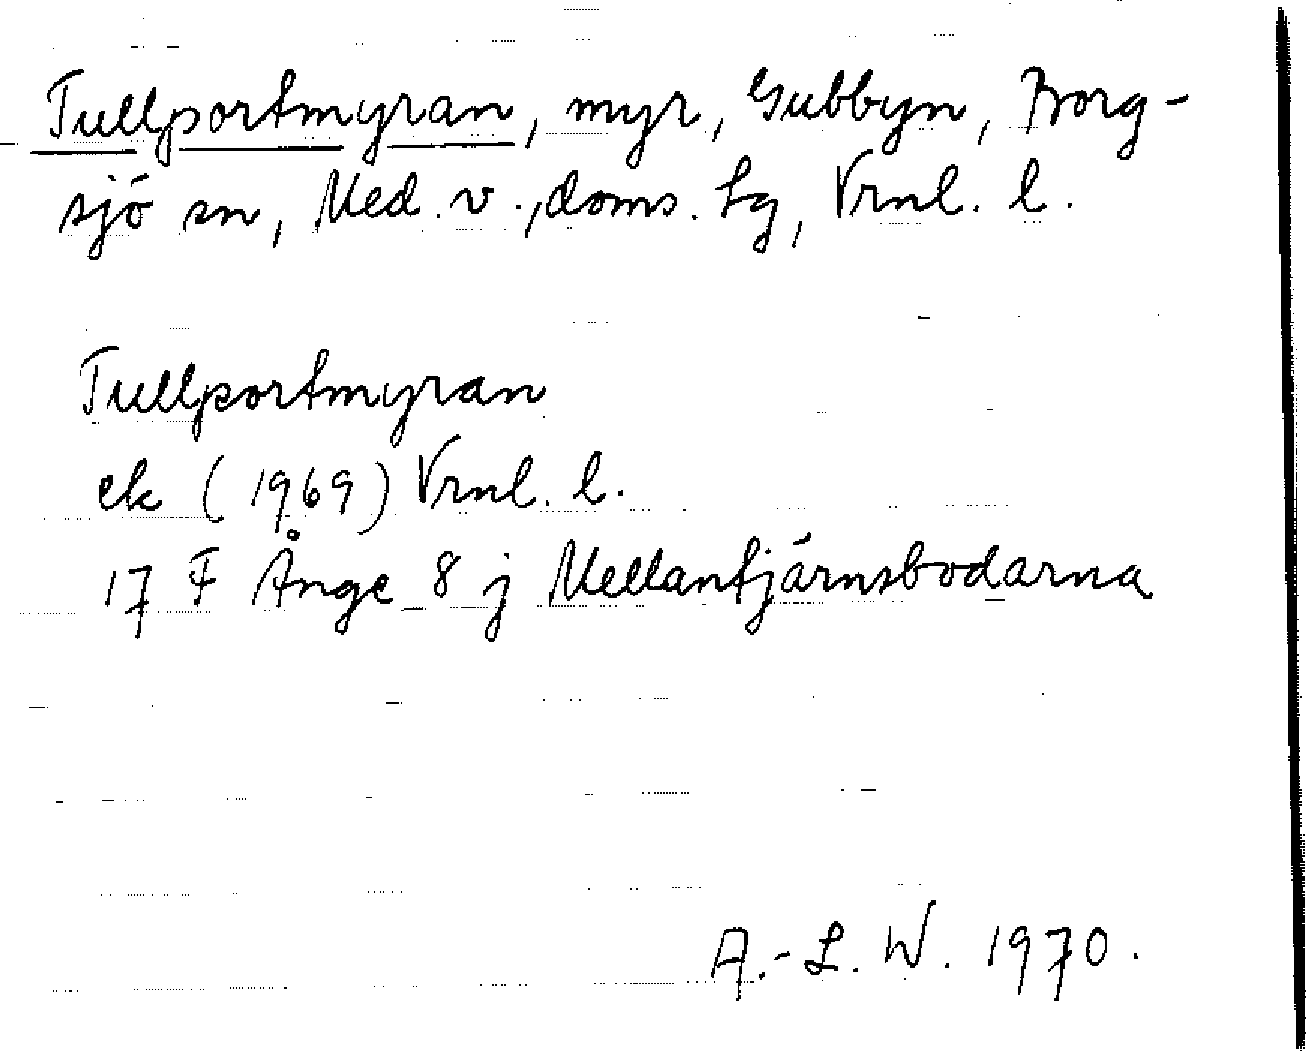 Tullportmyran, myr, Gubbyn, Borg-
sjö sn, Med. v., doms. tg, Vrnl. l.
Tullportmyran
ek (1969) Vrnl. l.
17 F Ånge 8 j Mellantjärnsbodarna
A.-L. W. 1970.